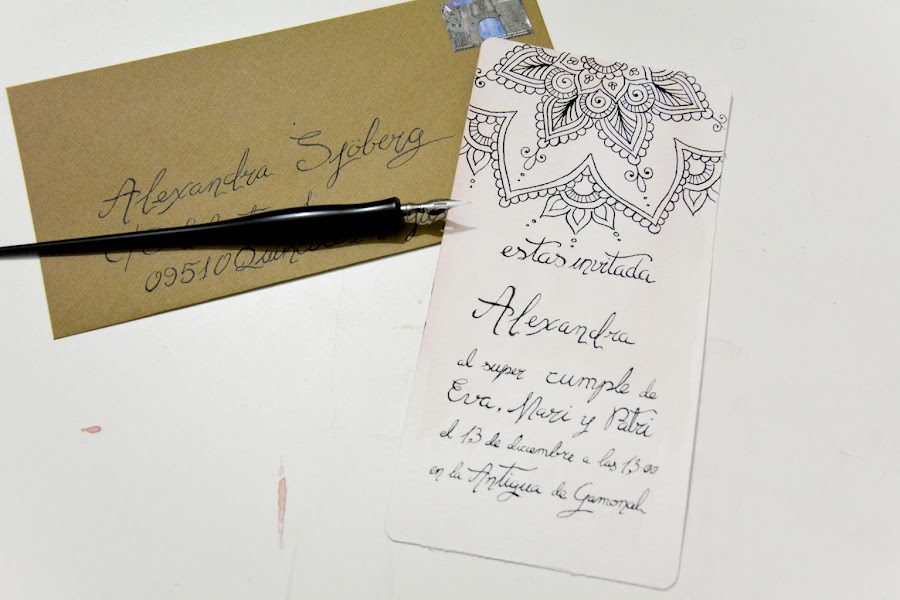 Alexandra Sjöberg
09510
estas invitada
Alexandra
al super cumple de
Eva, Mari y Patri
el 13 de diciembre a las 13:00
en la Antigua de Gamonal